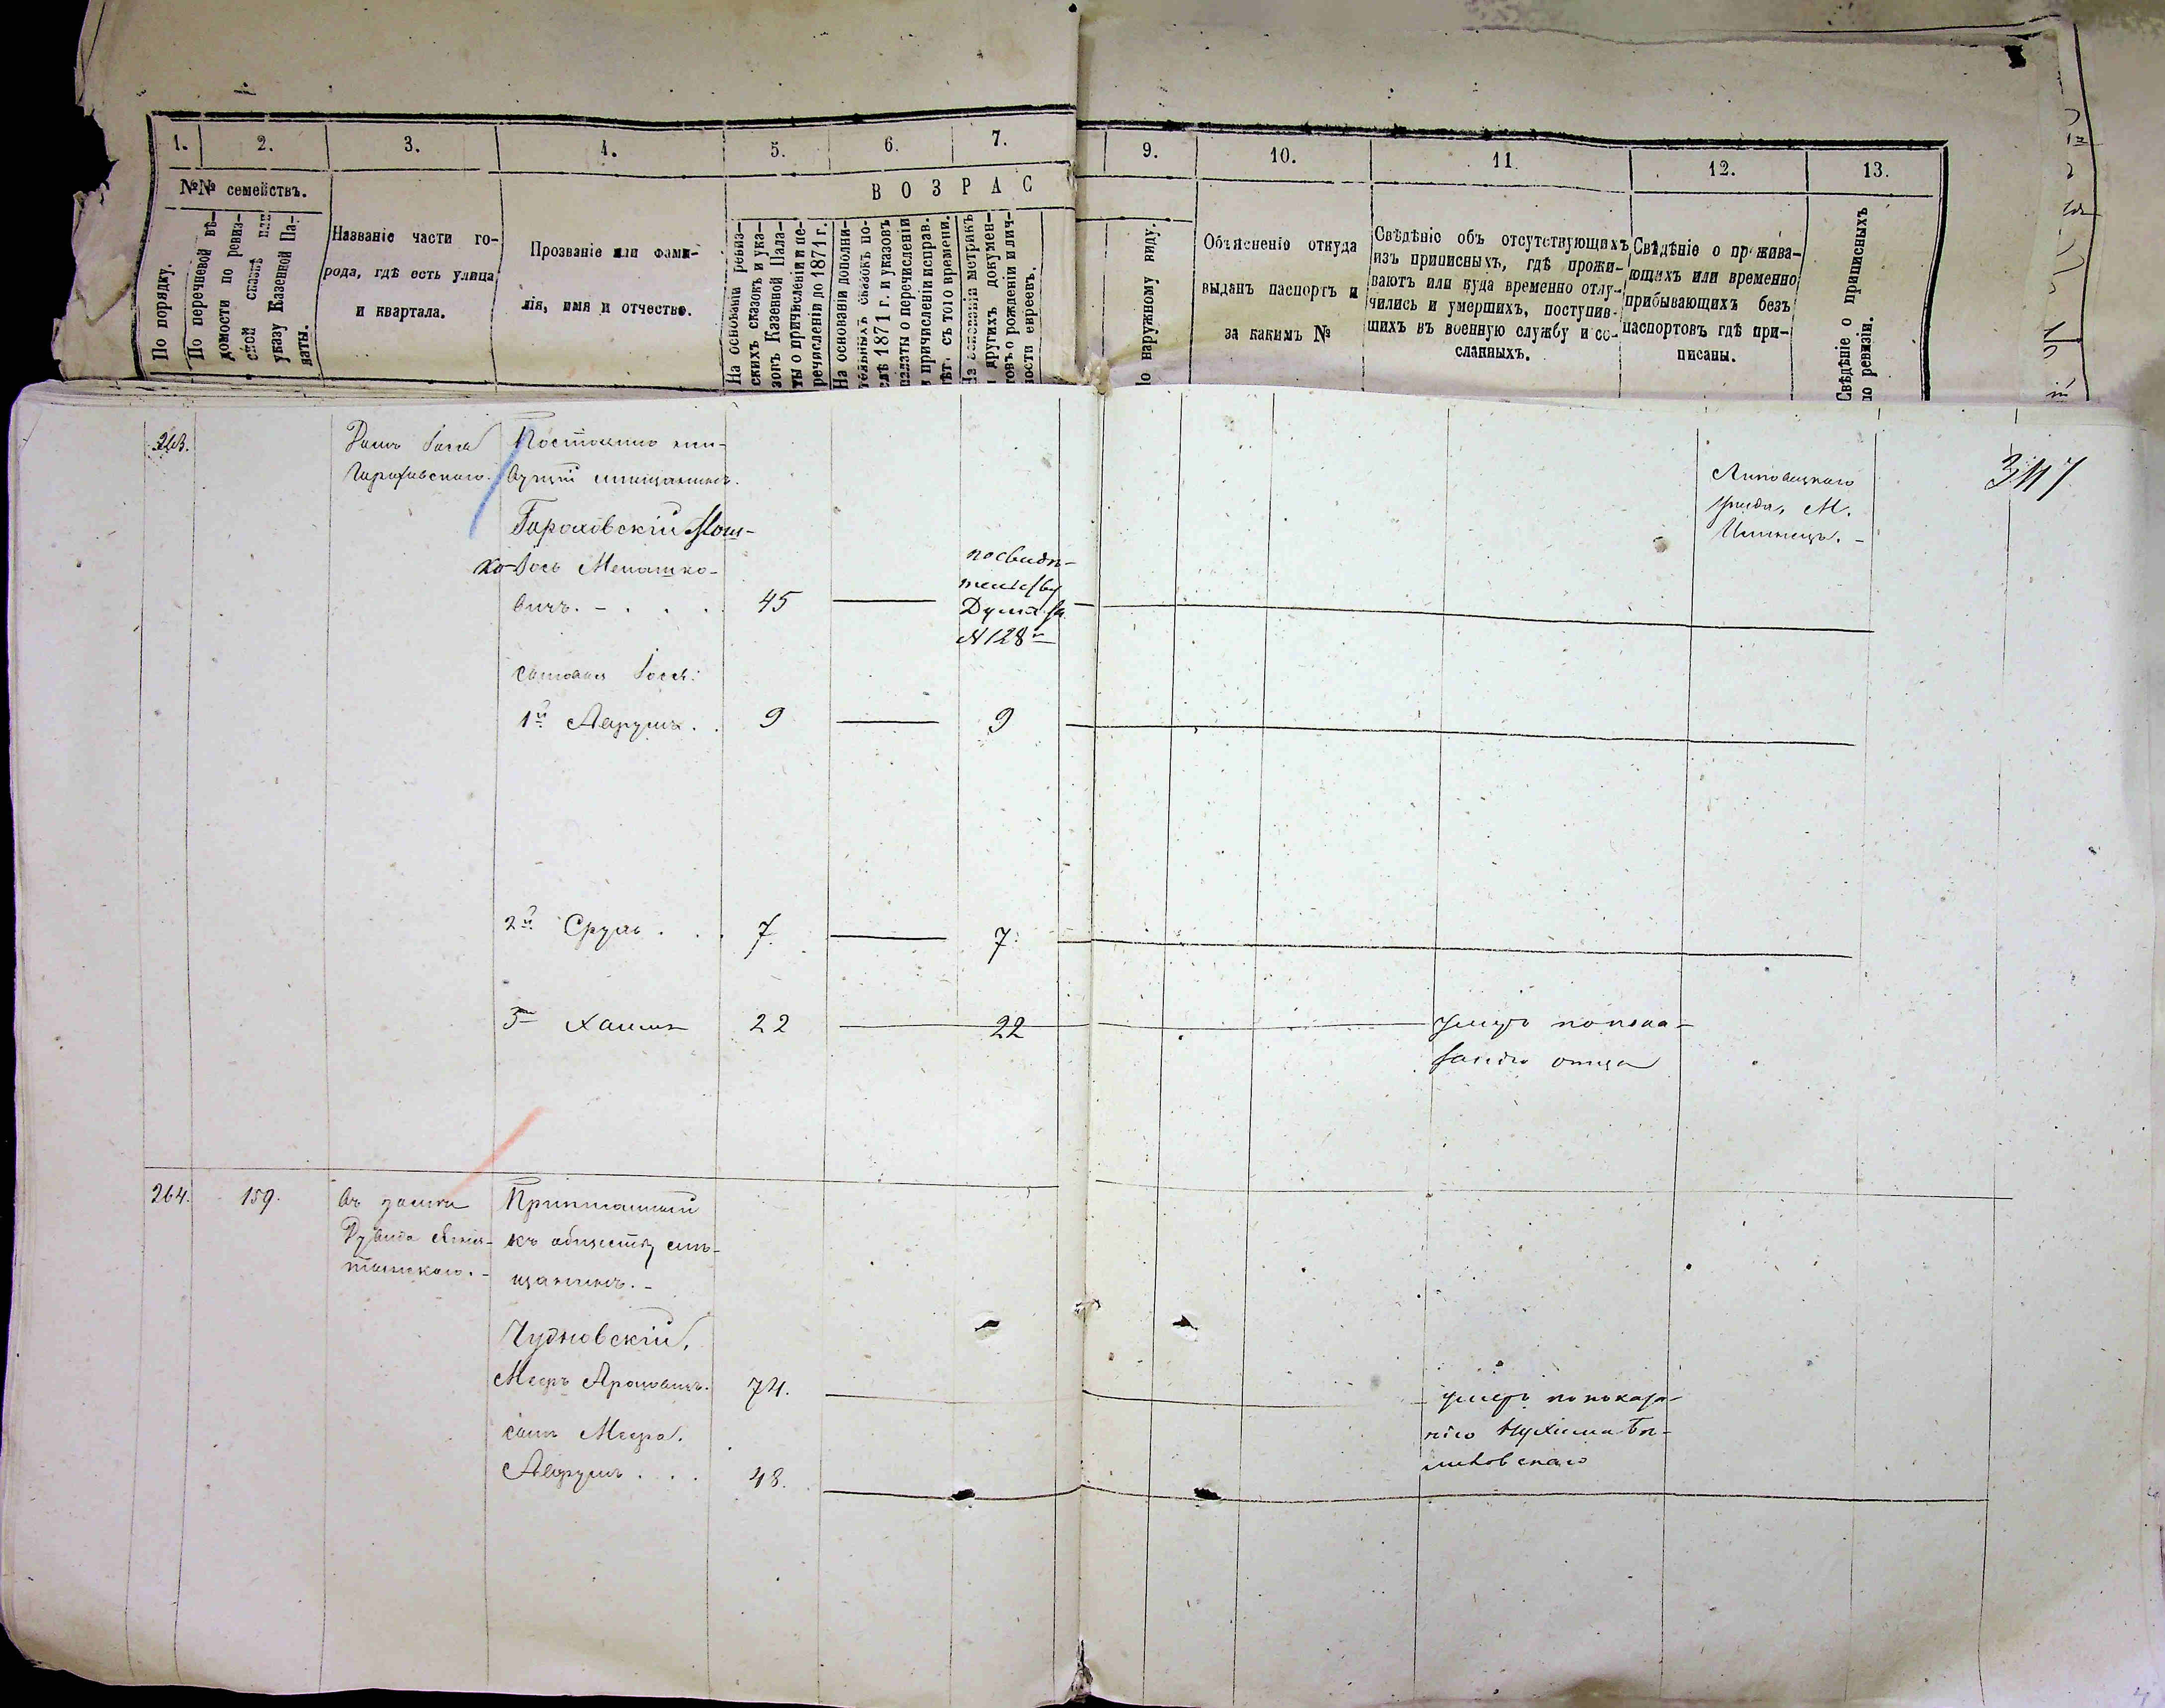 1. 2. 3. 4. 5. 6. 7. 9. 10. 11. 12. 13.
№№ семействъ.
По порядку.
По перечневой вѣ-
домости по ревиз-
ской сказкѣ или
указу Казенной Па-
латы.
Названіе части го-
рода, гдѣ есть улица
и квартала.
Прозваніе или фами-
лія, имя и отчество.
ВОЗРАС
На основаніи ревиз-
скихъ сказокъ и ука-
зовъ Казенной Пала-
ты о причисленіи и пе-
речисленіи до 1871 г.
На основаніи дополни-
тельныхъ сказокъ по-
слѣ 1871 г. и указовъ
палаты о перечисленіи
и причисленіи исправ.
лѣт. съ того времени.
На основаніи метрикъ
и другихъ докумен-
товъ о рожденіи и лич-
ности евреевъ.
По наружному виду.
Объясненіе откуда
выданъ паспортъ и
за какимъ №
Свѣдѣніе объ отсутствующихъ
изъ приписныхъ, гдѣ прожи-
ваютъ или куда временно отлу-
чились и умершихъ, поступив-
шихъ въ военную службу и со-
сланныхъ.
Свѣдѣніе о прожива-
ющихъ или временно
прибывающихъ безъ
паспортовъ гдѣ при-
писаны.
Свѣдѣніе о приписныхъ
по ревизіи.
263.
Домъ Іося
Гороховскаго.
Постоянно жи-
вущій мѣщанинъ.
Гороховскій Мош-
ко-Іось Менашко-
вичъ. - . . . 45
по свидѣ-
тельству
Думы за
№ 128
Липовецкаго
уѣзда, М.
317
сыновья Іося:
1й Аврумъ . . 9 9
2й Сруль . . . 7. 7.
3 Хаимъ 22 22
умеръ по пока-
занію отца
264. 159.
въ домѣ
Дувида
Приписанный
къ обществу мѣ-
щанинъ. -
Чудновскій,
Мееръ Ароновичъ. 74.
умеръ по показа-
нію Нухима
сынъ Меера.
Аврумъ . . . 48.